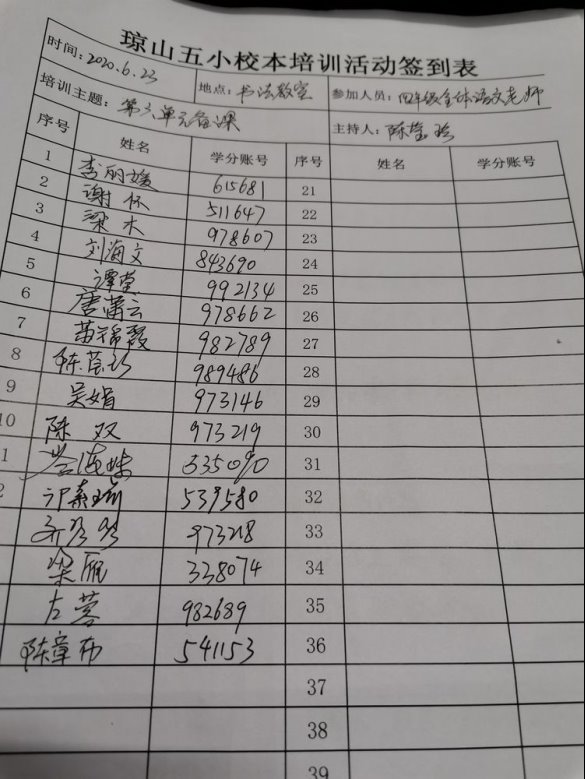 琼山五小校本培训活动签到表
时间：2020.6.23 地点：书法教室 参加人员：四年级全体语文老师
培训主题：第六单元备课 主持人：陈莹珍
序号 姓名 学分账号 序号 姓名 学分账号
1 李丽媛 615681 21
2 谢怀 511647 22
3 梁木 978607 23
4 刘海文 843690 24
5 谭莹 992134 25
6 唐潇云 978662 26
7 苗锦霞 982789 27
8 989486 28
9 吴娟 973146 29
10 陈双 973219 30
1 335090 31
2 539580 32
973218 33
梁雁 338074 34
左蓉 982689 35
陈章布 541153 36
37
38
39